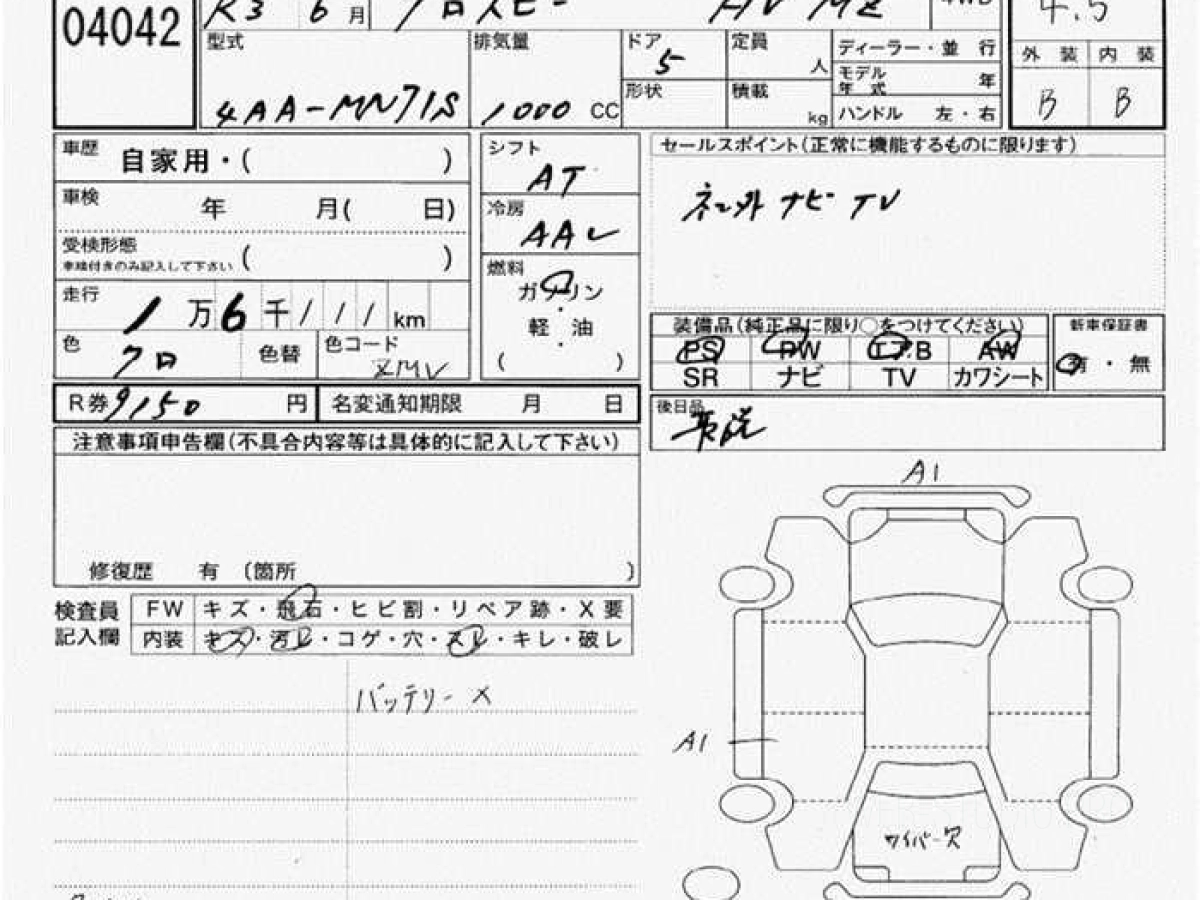 04042
R3 6月 クロスビー HV MZ 4WD 4.5
型式 4AA-MN71S
排気量 1000 CC
ドア 5
形状
定員 人
積載 kg
ディーラー・並 行
モデル年式 年
ハンドル 左・右
外 装 内 装
B B
車歴 自家用・( )
車検 年 月( 日)
受検形態
車検付きのみ記入して下さい ( )
走行 1万6千111km
色 クロ 色替 色コード ZMV
シフト AT
冷房 AAC
燃料
ガソリン
・
軽 油
・
( )
セールスポイント(正常に機能するものに限ります)
ネン外 ナビ TV
装備品(純正品に限り○をつけてください)
PS PW エアB AW
SR ナビ TV カワシート
新車保証書
有・無
R券 9150 円 名変通知期限 月 日
後日品
注意事項申告欄(不具合内容等は具体的に記入して下さい)
修復歴 有 〔箇所 〕
検査員記入欄
FW キズ・飛石・ヒビ割・リペア跡・X要
内装 キズ・汚レ・コゲ・穴・スレ・キレ・破レ
バッテリー ×
A1
A1
ワイパー欠